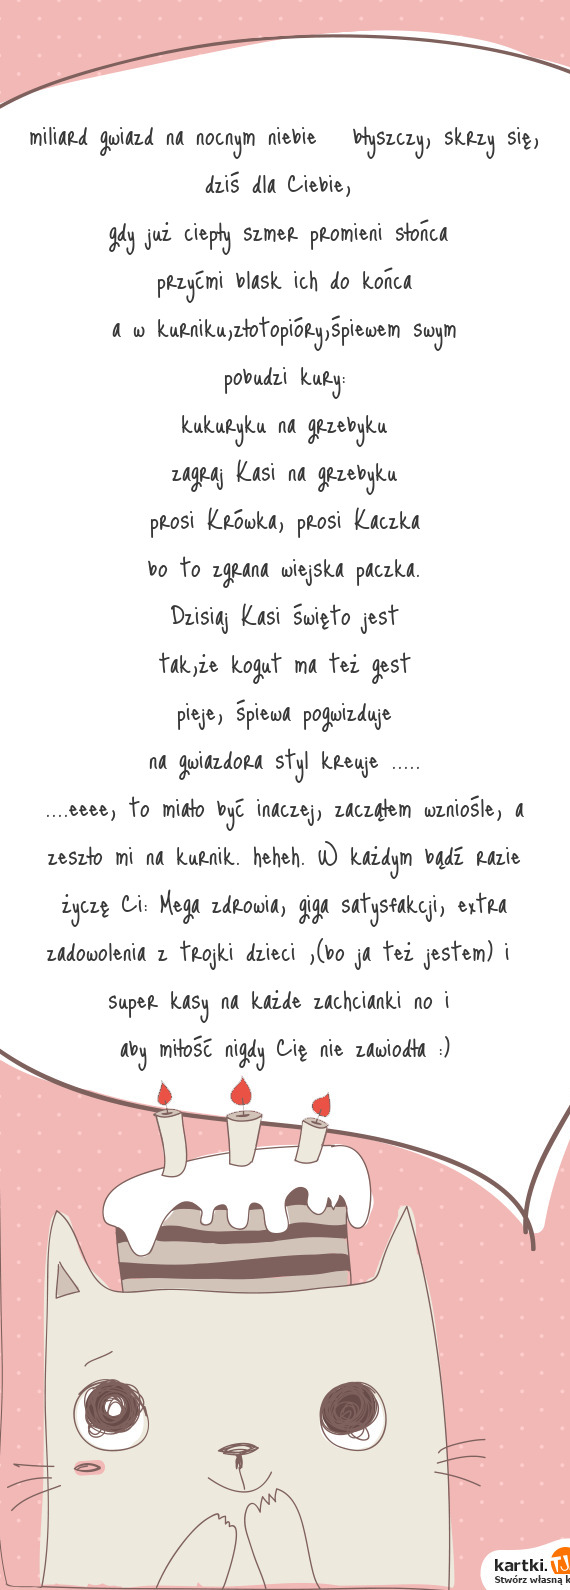 miliard gwiazd na nocnym niebie błyszczy, skrzy się,
dziś dla Ciebie,
gdy już ciepły szmer promieni słońca
przyćmi blask ich do końca
a w kurniku,złotopióry,śpiewem swym
pobudzi kury:
kukuryku na grzebyku
zagraj Kasi na grzebyku
prosi Krówka, prosi Kaczka
bo to zgrana wiejska paczka.
Dzisiaj Kasi święto jest
tak,że kogut ma też gest
pieje, śpiewa pogwizduje
na gwiazdora styl kreuje .....
....eeee, to miało być inaczej, zacząłem wzniośle, a
zeszło mi na kurnik. heheh. W każdym bądź razie
życzę Ci: Mega zdrowia, giga satysfakcji, extra
zadowolenia z trojki dzieci ,(bo ja też jestem) i
super kasy na każde zachcianki no i
aby miłość nigdy Cię nie zawiodła :)
kartki.TJ
Stwórz własną k